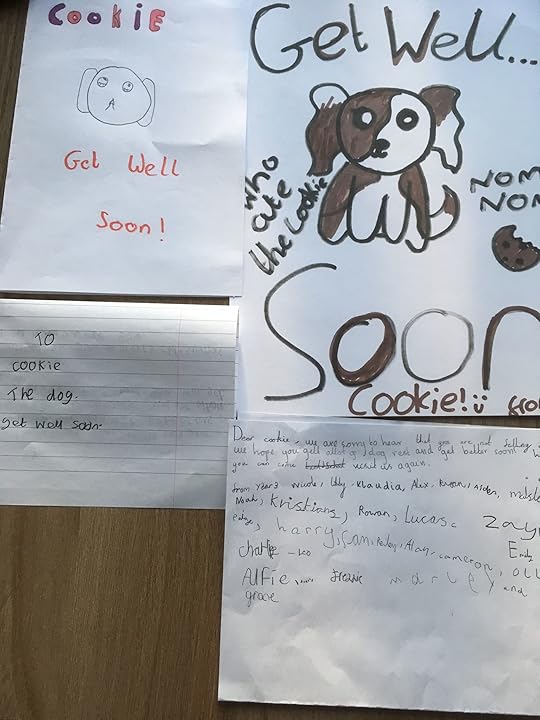 COOKIE
Get Well
Soon!
Get Well...
who
ate
the cookie
NOM
NOM
Soon
Cookie! from
TO
cookie
The dog.
get well soon.
Dear cookie, we are sorry to hear that you are not felling
we hope you get allot of dog rest and get better soon
you can come visit us again.
from Year 3 Nicole, Lilly, Klaudia, Alex,
Noah, Kristians, Rowan, Lucas.
harry, Sam, Alan, cameron,
charlie - Leo
Alfie, marley and
grace